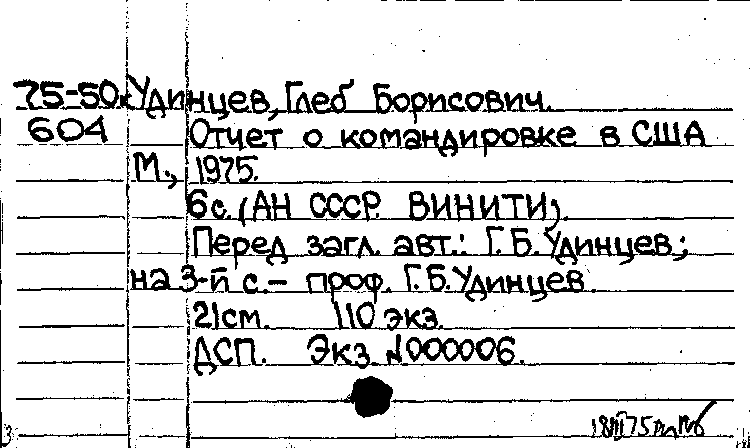 75-50к Удинцев, Глеб Борисович.
604 Отчет о командировке в США
М., 1975.
6 с. (АН СССР. ВИНИТИ).
Перед загл. авт.: Г.Б. Удинцев;
на 3-й с. – проф. Г.Б. Удинцев.
21 см. 110 экз.
ДСП. Экз. №000006.